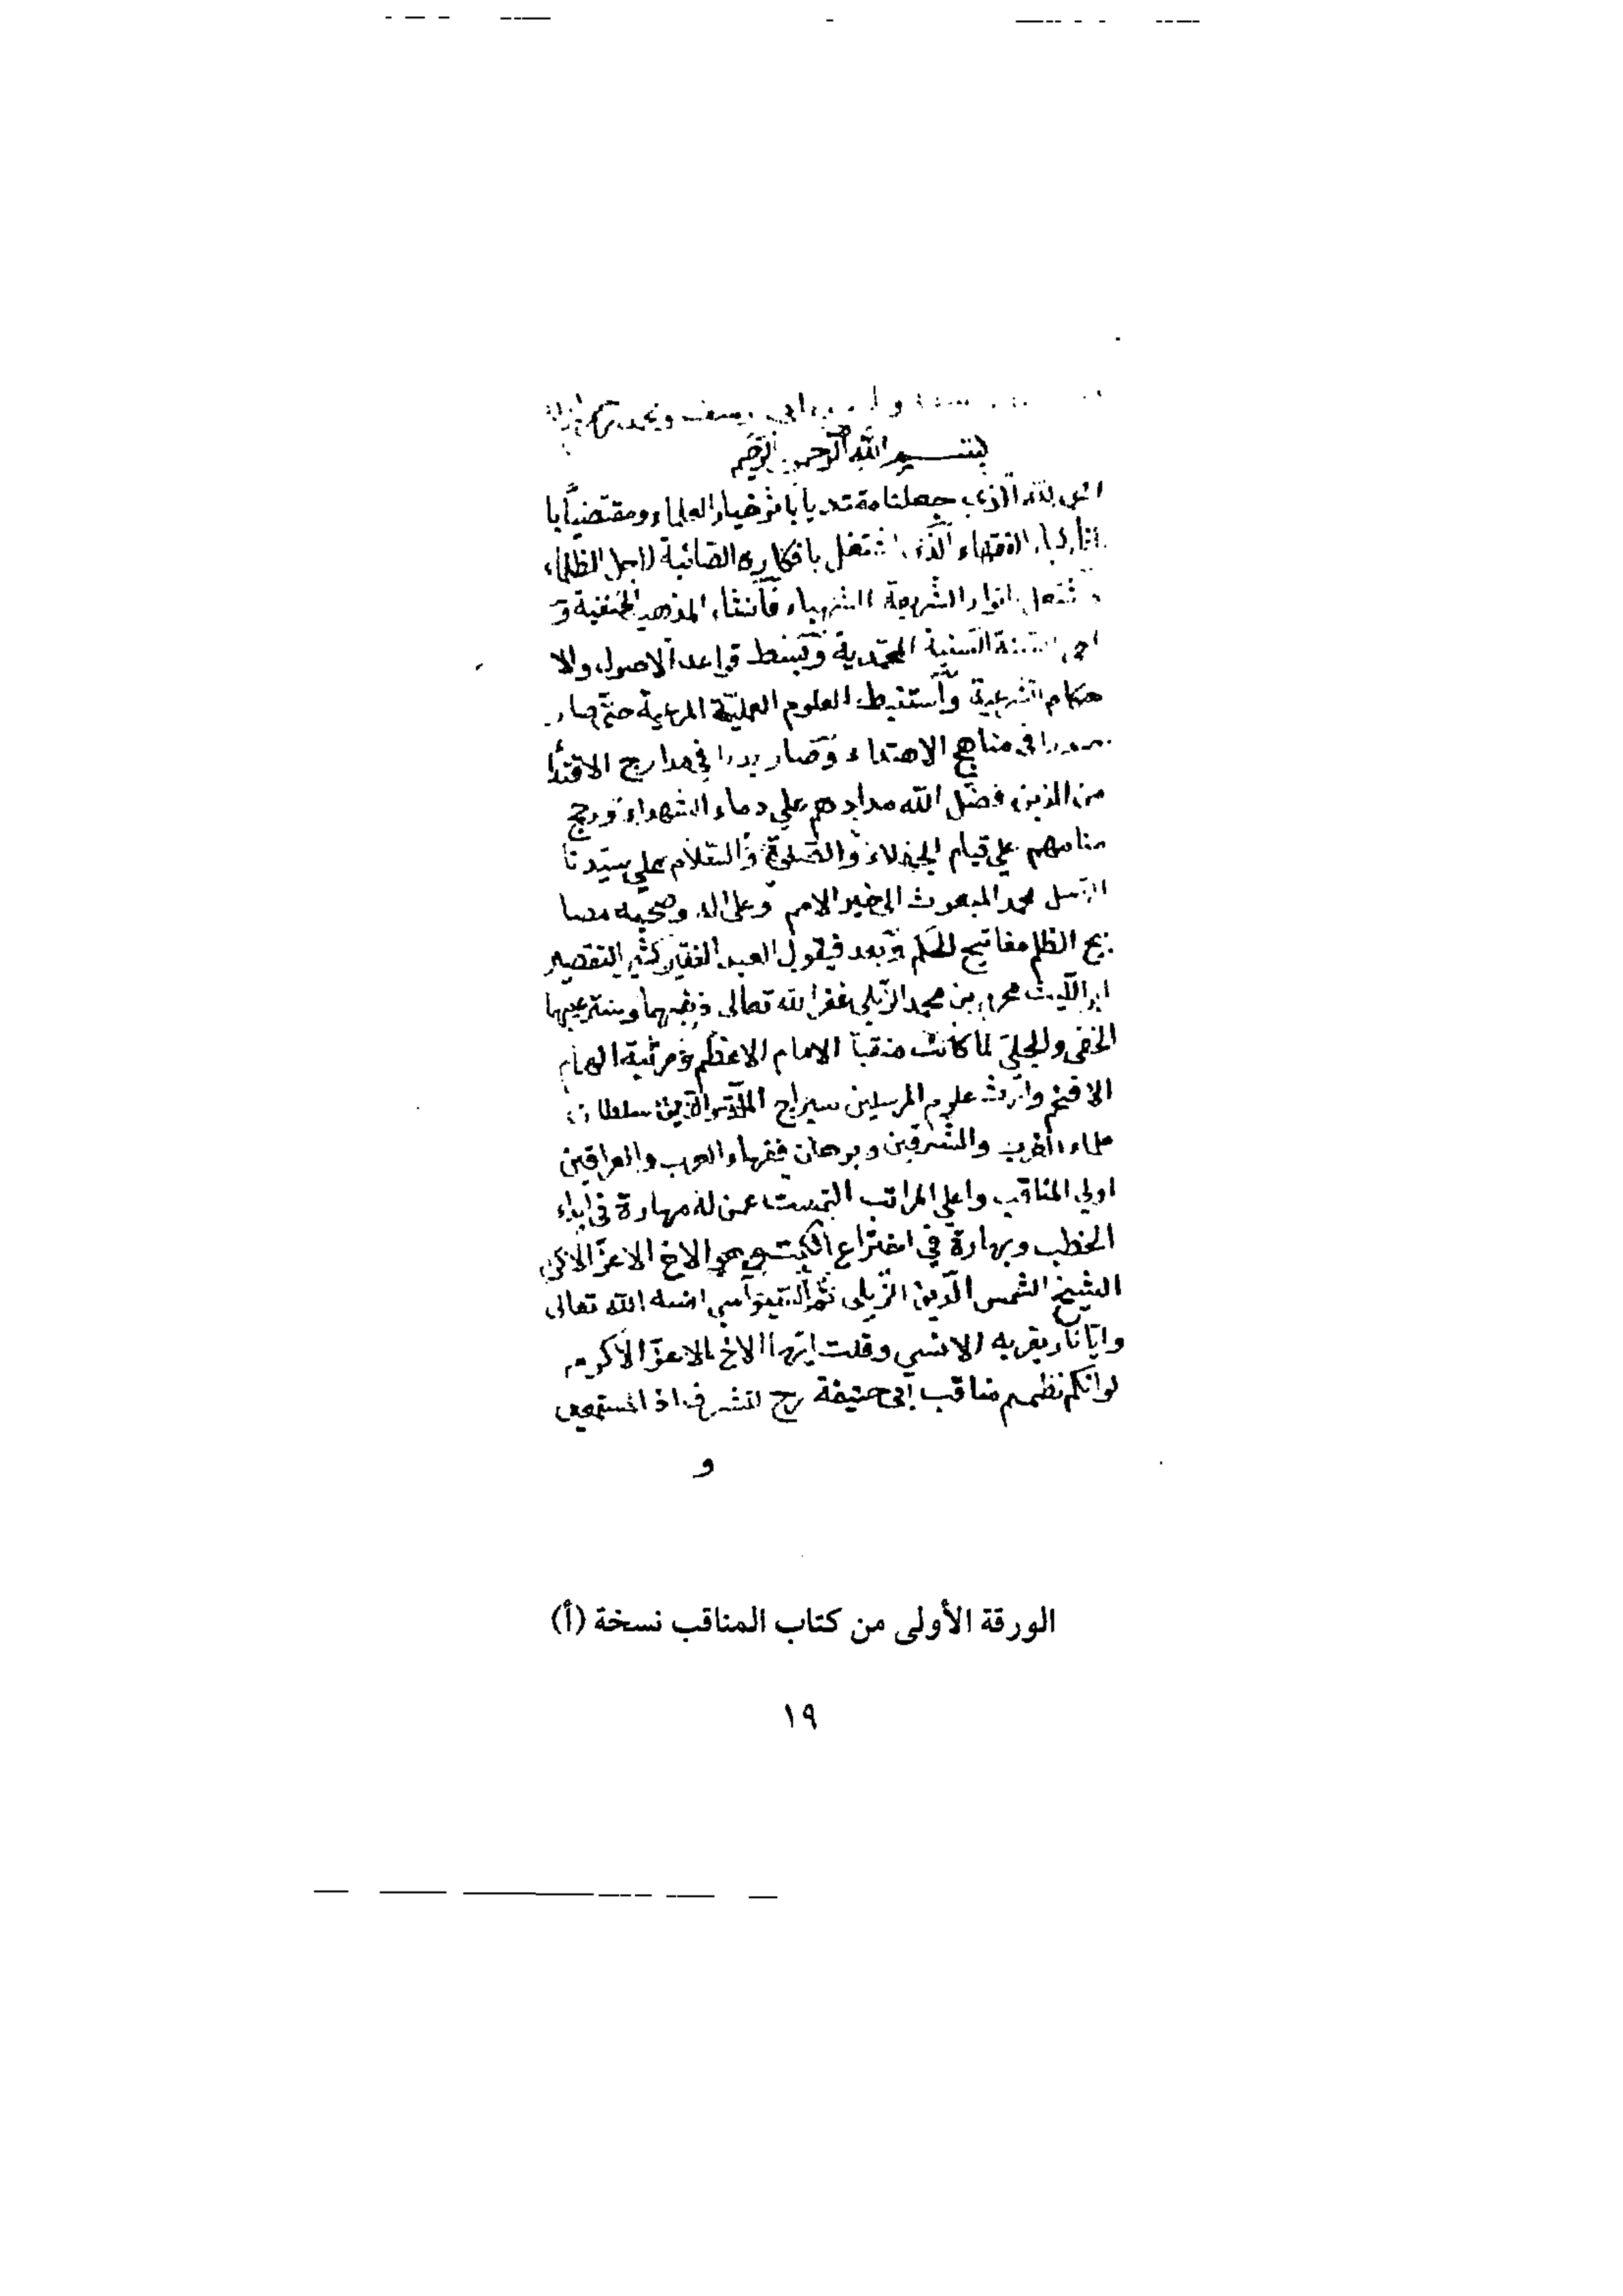 ابي يوسف ومحمد
بسم الله الرحمن الرحيم
الذي جعلنا مقتديا بأثر خيار العلماء ومقتضيا با
الفقهاء الذي اشتغل بافكاره الصائبة لاجل الظلماء
انوار الشريعة الشهباء فانشاء المذهب الحنفية و
السنية المحمدية وبسط قواعد الاصول والا
حكام الشرعية واستنبط العلوم العملية المرعية حتى صار
في مناهج الاهتداء وصار بدرا في مدارج الاقتدا
من الذين فضل الله مدادهم على دماء الشهداء ورجح
منامهم على قيام الجهلاء والصلوة والسلام على سيدنا
محمد المبعوث الى خير الامم وعلى اله وصحبه مصا
بيح الظلم مفاتيح الحكم وبعد فيقول العبد الفقير كثير التقصير
ابو الليث محرم بن محمد الزيلي غفر الله تعالى ذنبهما وستر عيبهما
الخفي والجلي لما كانت منقبا الامام الاعظم ومرتبة الهمام
الافخم وارث علوم المرسلين سراج الملة والدين سلطان
علماء الغرب والمشرقين وبرهان فقهاء العرب والعراقين
اولي المناقب واعلى المراتب التمست عمن له مهارة في ابداء
الخطب وبهارة في اختراع الكتب وهو الاخ الاعز الاكرم
الشيخ الشمس الدين الزيلي ثم السيواسي انسه الله تعالى
وايانا بقربه الانسي وقلت ايها الاخ الاعز الاكرم
لو انكم نظمتم مناقب ابي حنيفة رح لتشرف اذا
و
الورقة الأولى من كتاب المناقب نسخة (أ)
١٩